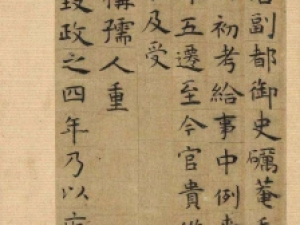 副都御史礪菴
初考給事中例
五遷至今官貴
及受
孺人重
致政之四年乃以